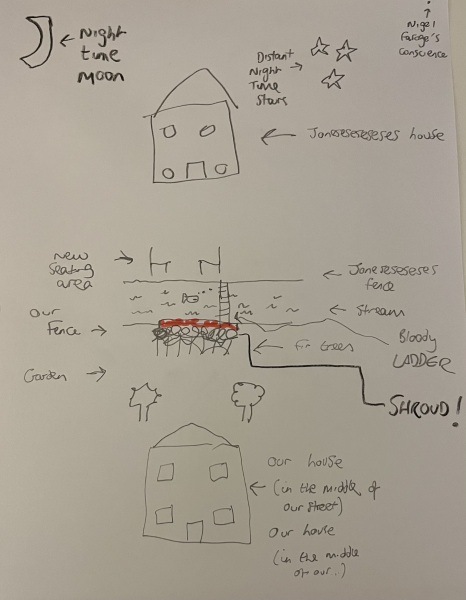 Night
time
moon
Distant
Night
Time
Stars
Nigel
Farage's
Conscience
Joneseseseseses house
New
Seating
area
Joneseseseses
fence
our
Fence
Stream
Bloody
LADDER
Fir trees
Garden
SHROUD!
Our house
(in the middle of
our street)
Our house
(in the middle
of our..)